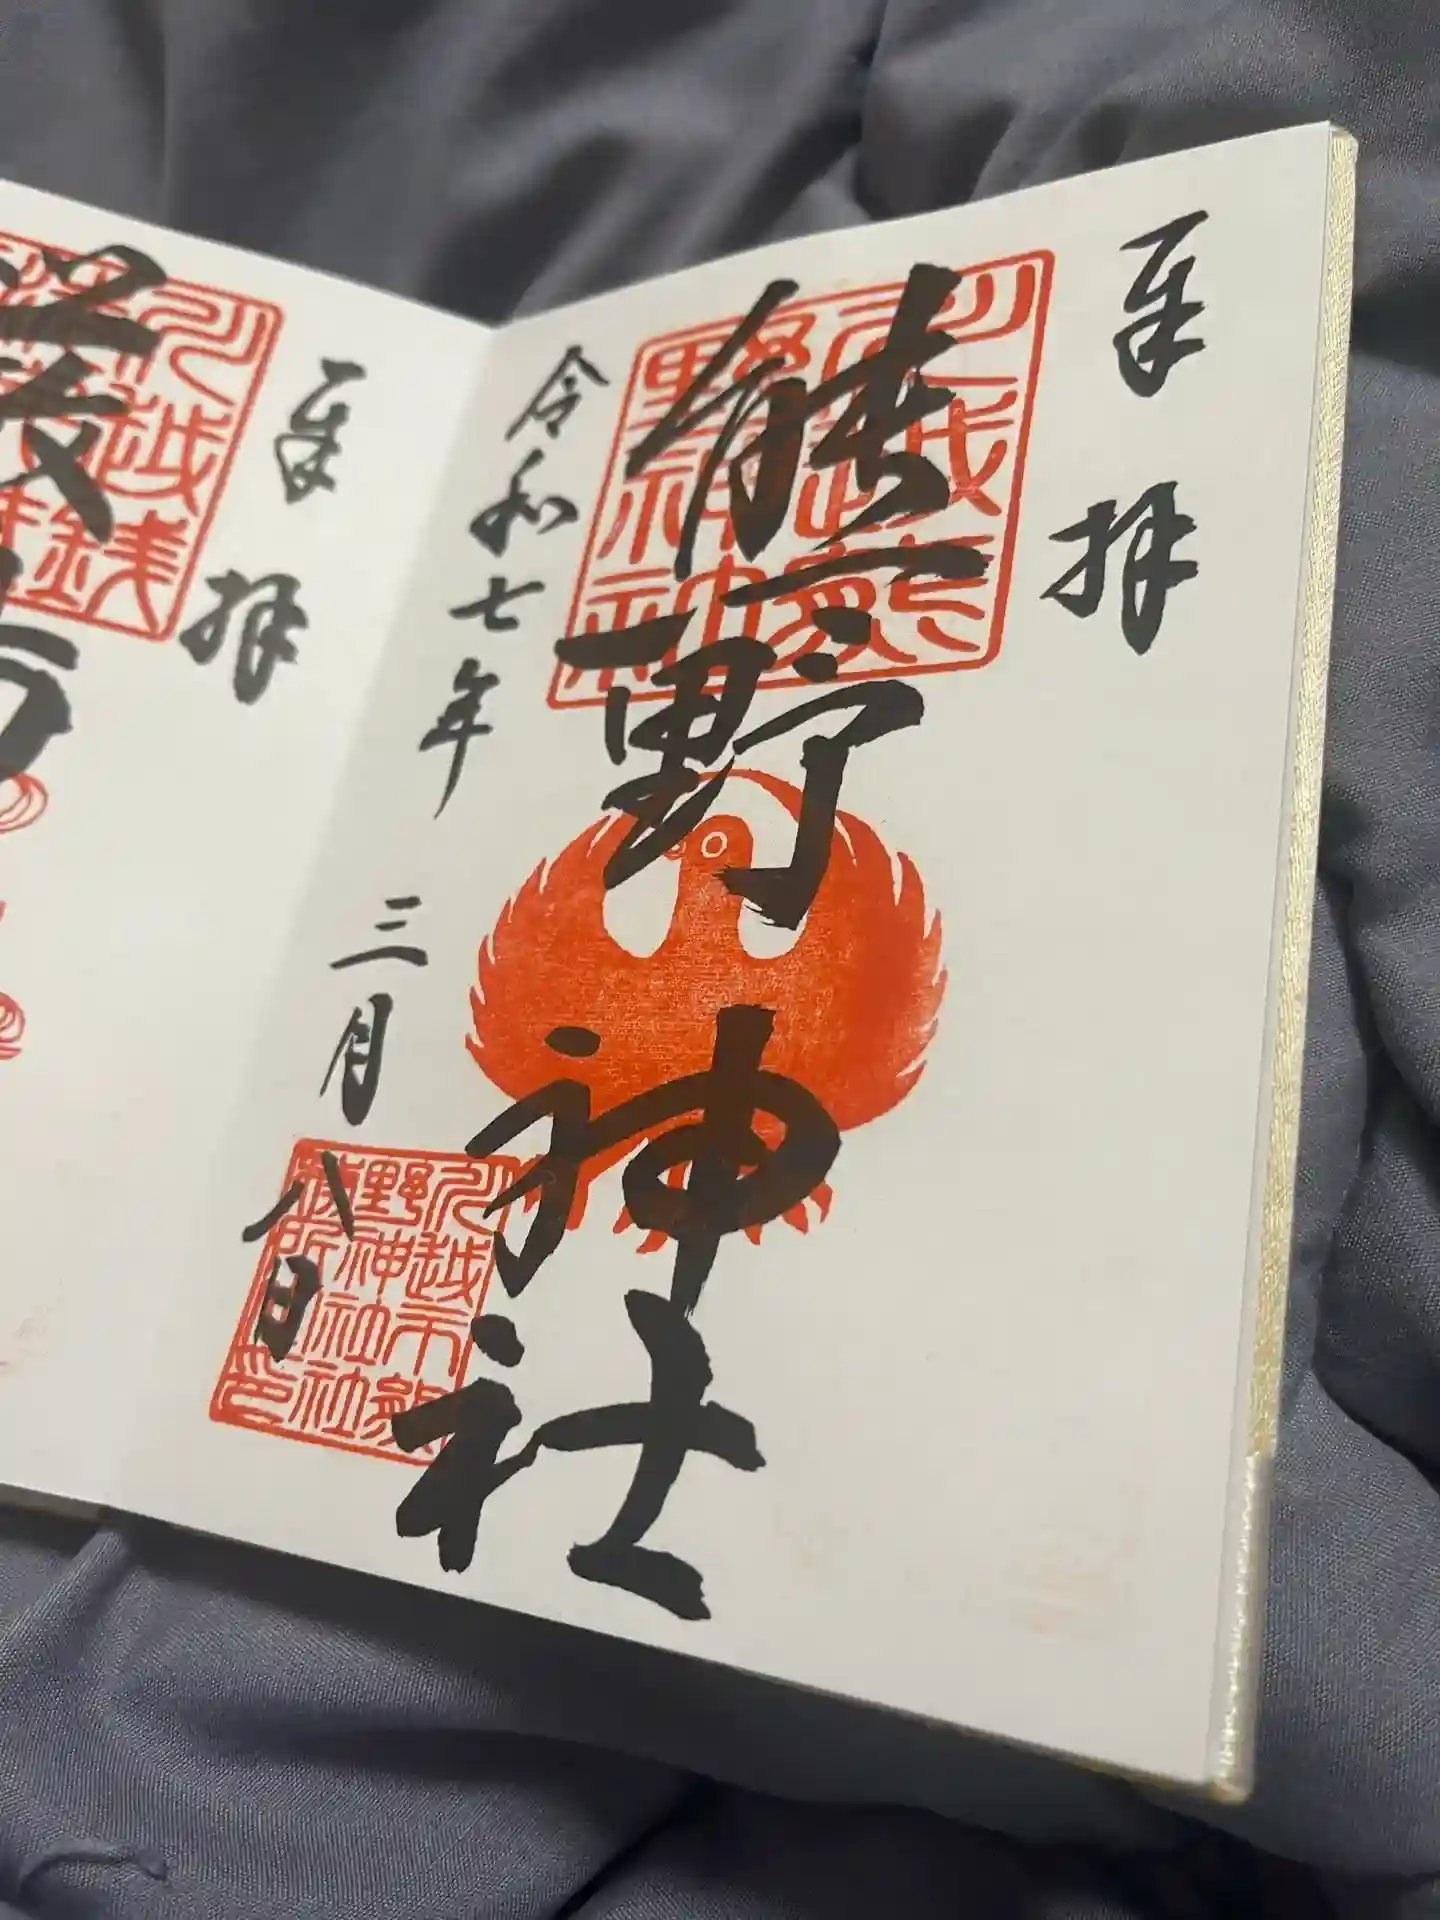 奉拝
川越熊野神社
熊野神社
令和七年三月八日
川越市熊野神社社務所之印
奉拝
川越
銭